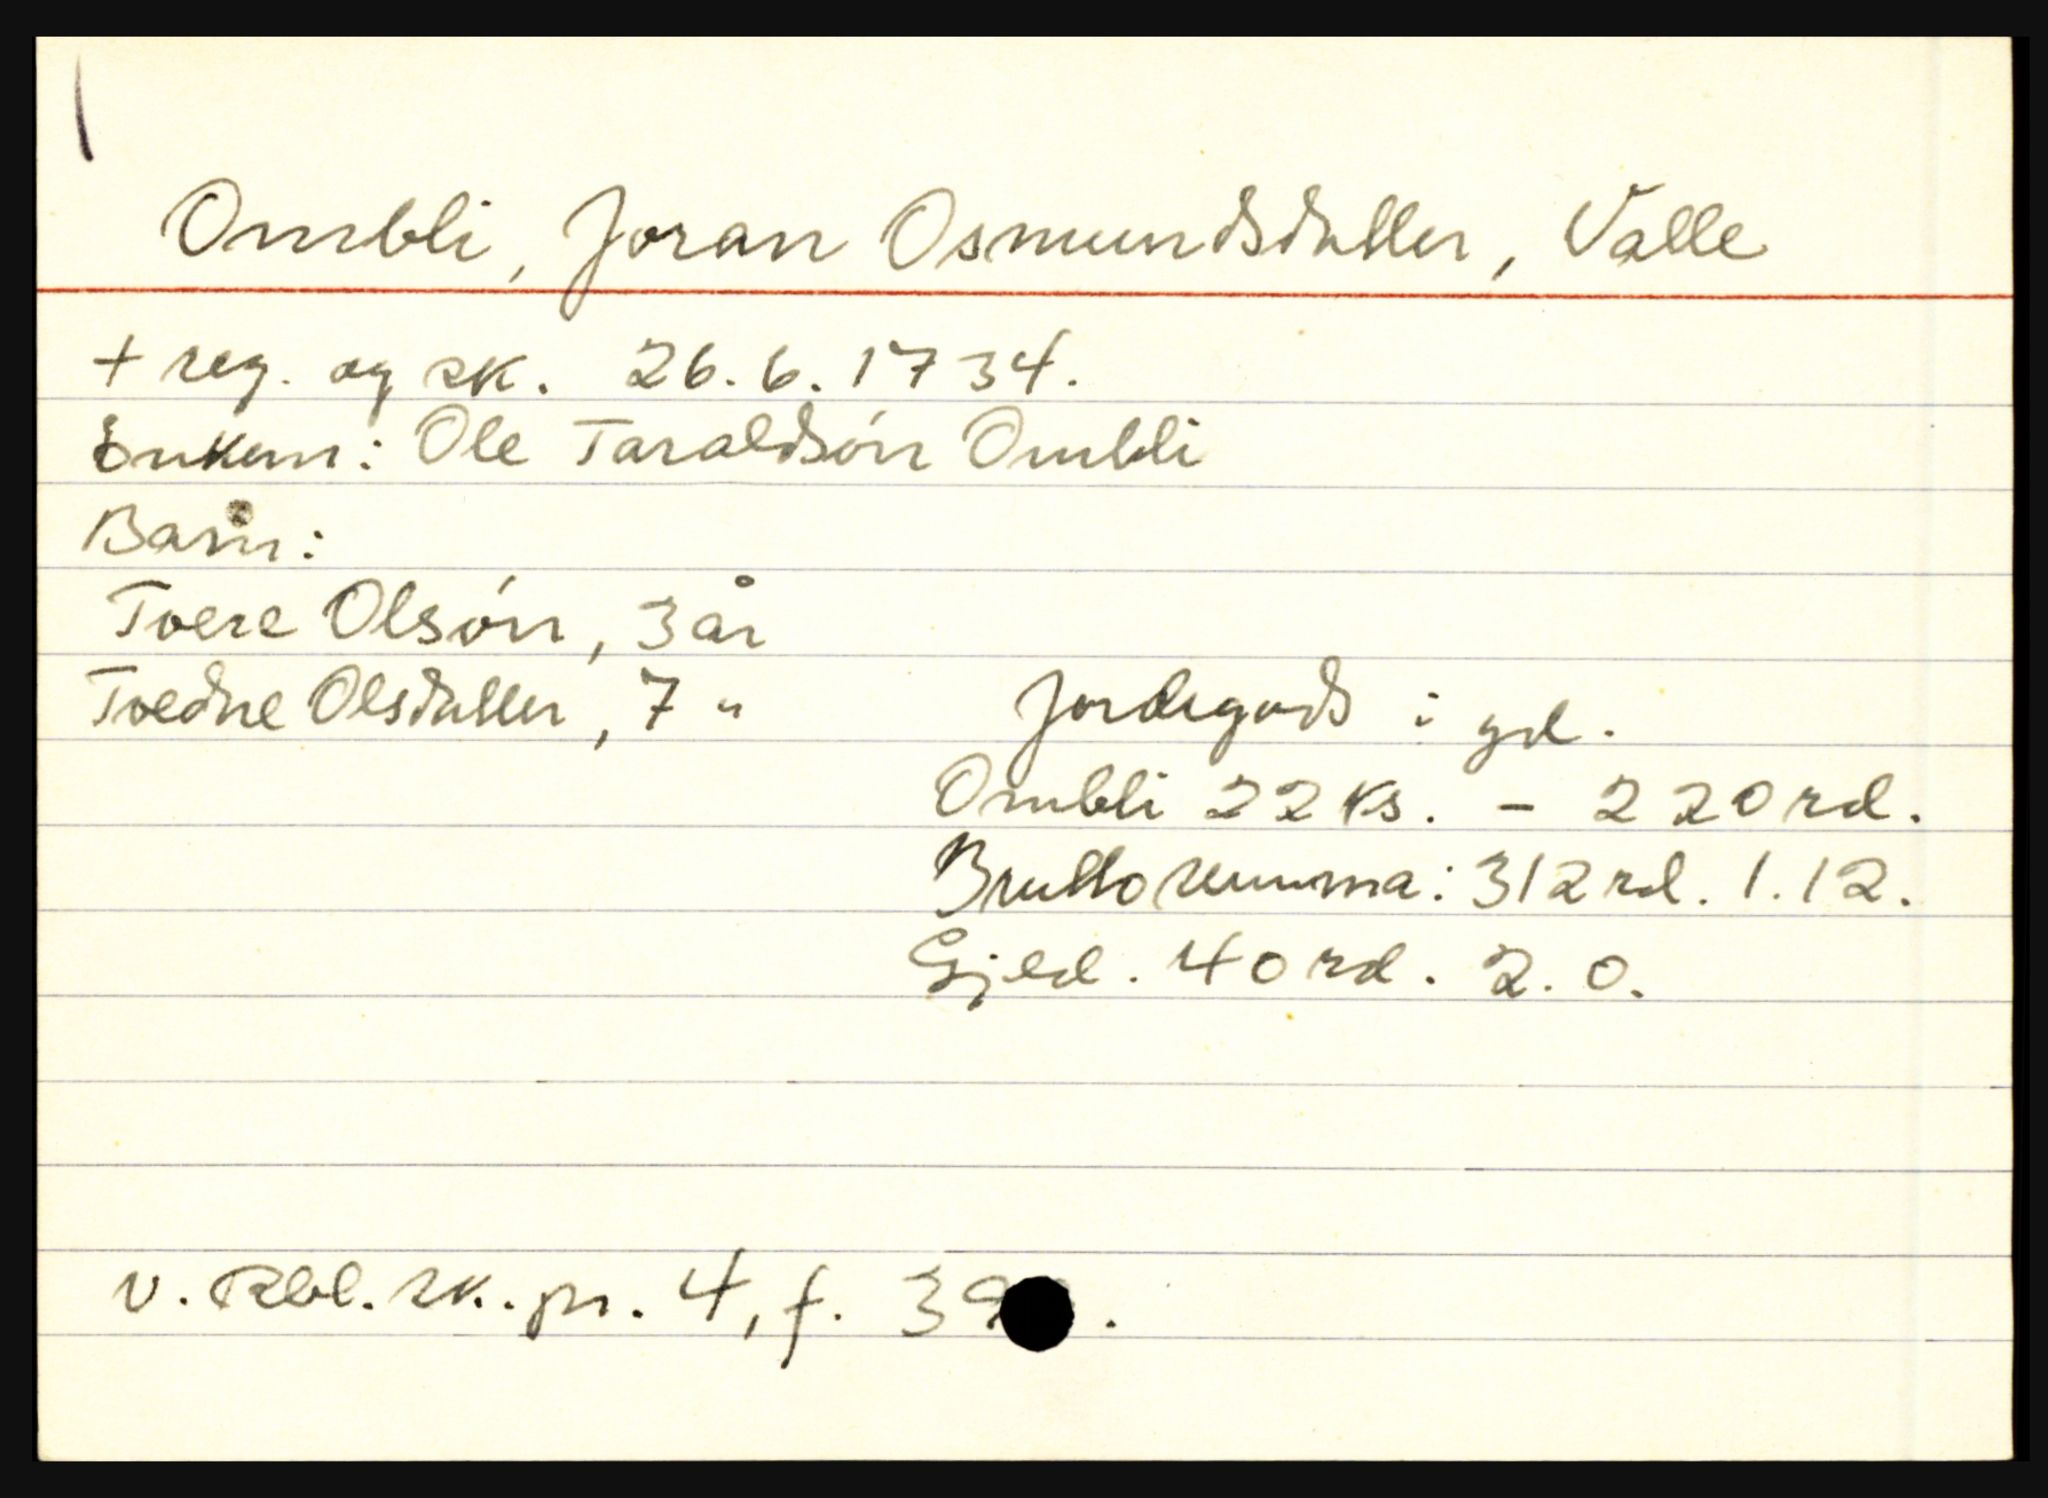 Ombli, Joran Osmundsdatter, Valle
+ reg. og sk. 26.6.1734.
Enkem: Ole Taraldsón Ombli
Barn:
Toere Olsón, 3 år
Toedne Olsdatter, 7 "
Jordegods i gd.
Ombli 22 ks. - 220 rd.
Bruttosumma: 312 rd. 1.12.
Gjeld. 40 rd. 2.0.
v. Rbl. sk. pr. 4, f.